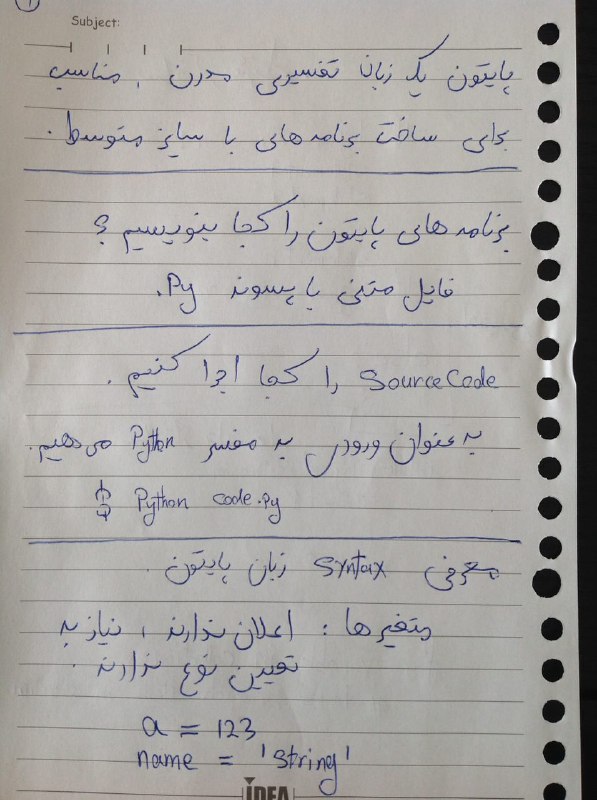 ①
Subject:
پایتون یک زبان تفسیری مدرن ، مناسب
برای ساخت برنامه های با سایز متوسط .
برنامه های پایتون را کجا بنویسیم ؟
فایل متنی با پسوند .Py
SourceCode را کجا اجرا کنیم .
به عنوان ورودی به مفسر Python می دهیم .
$ Python code.py
معرفی Syntax زبان پایتون .
متغیرها : اعلان ندارند ، نیاز به
تعیین نوع ندارند .
a = 123
name = 'String'
IDEA